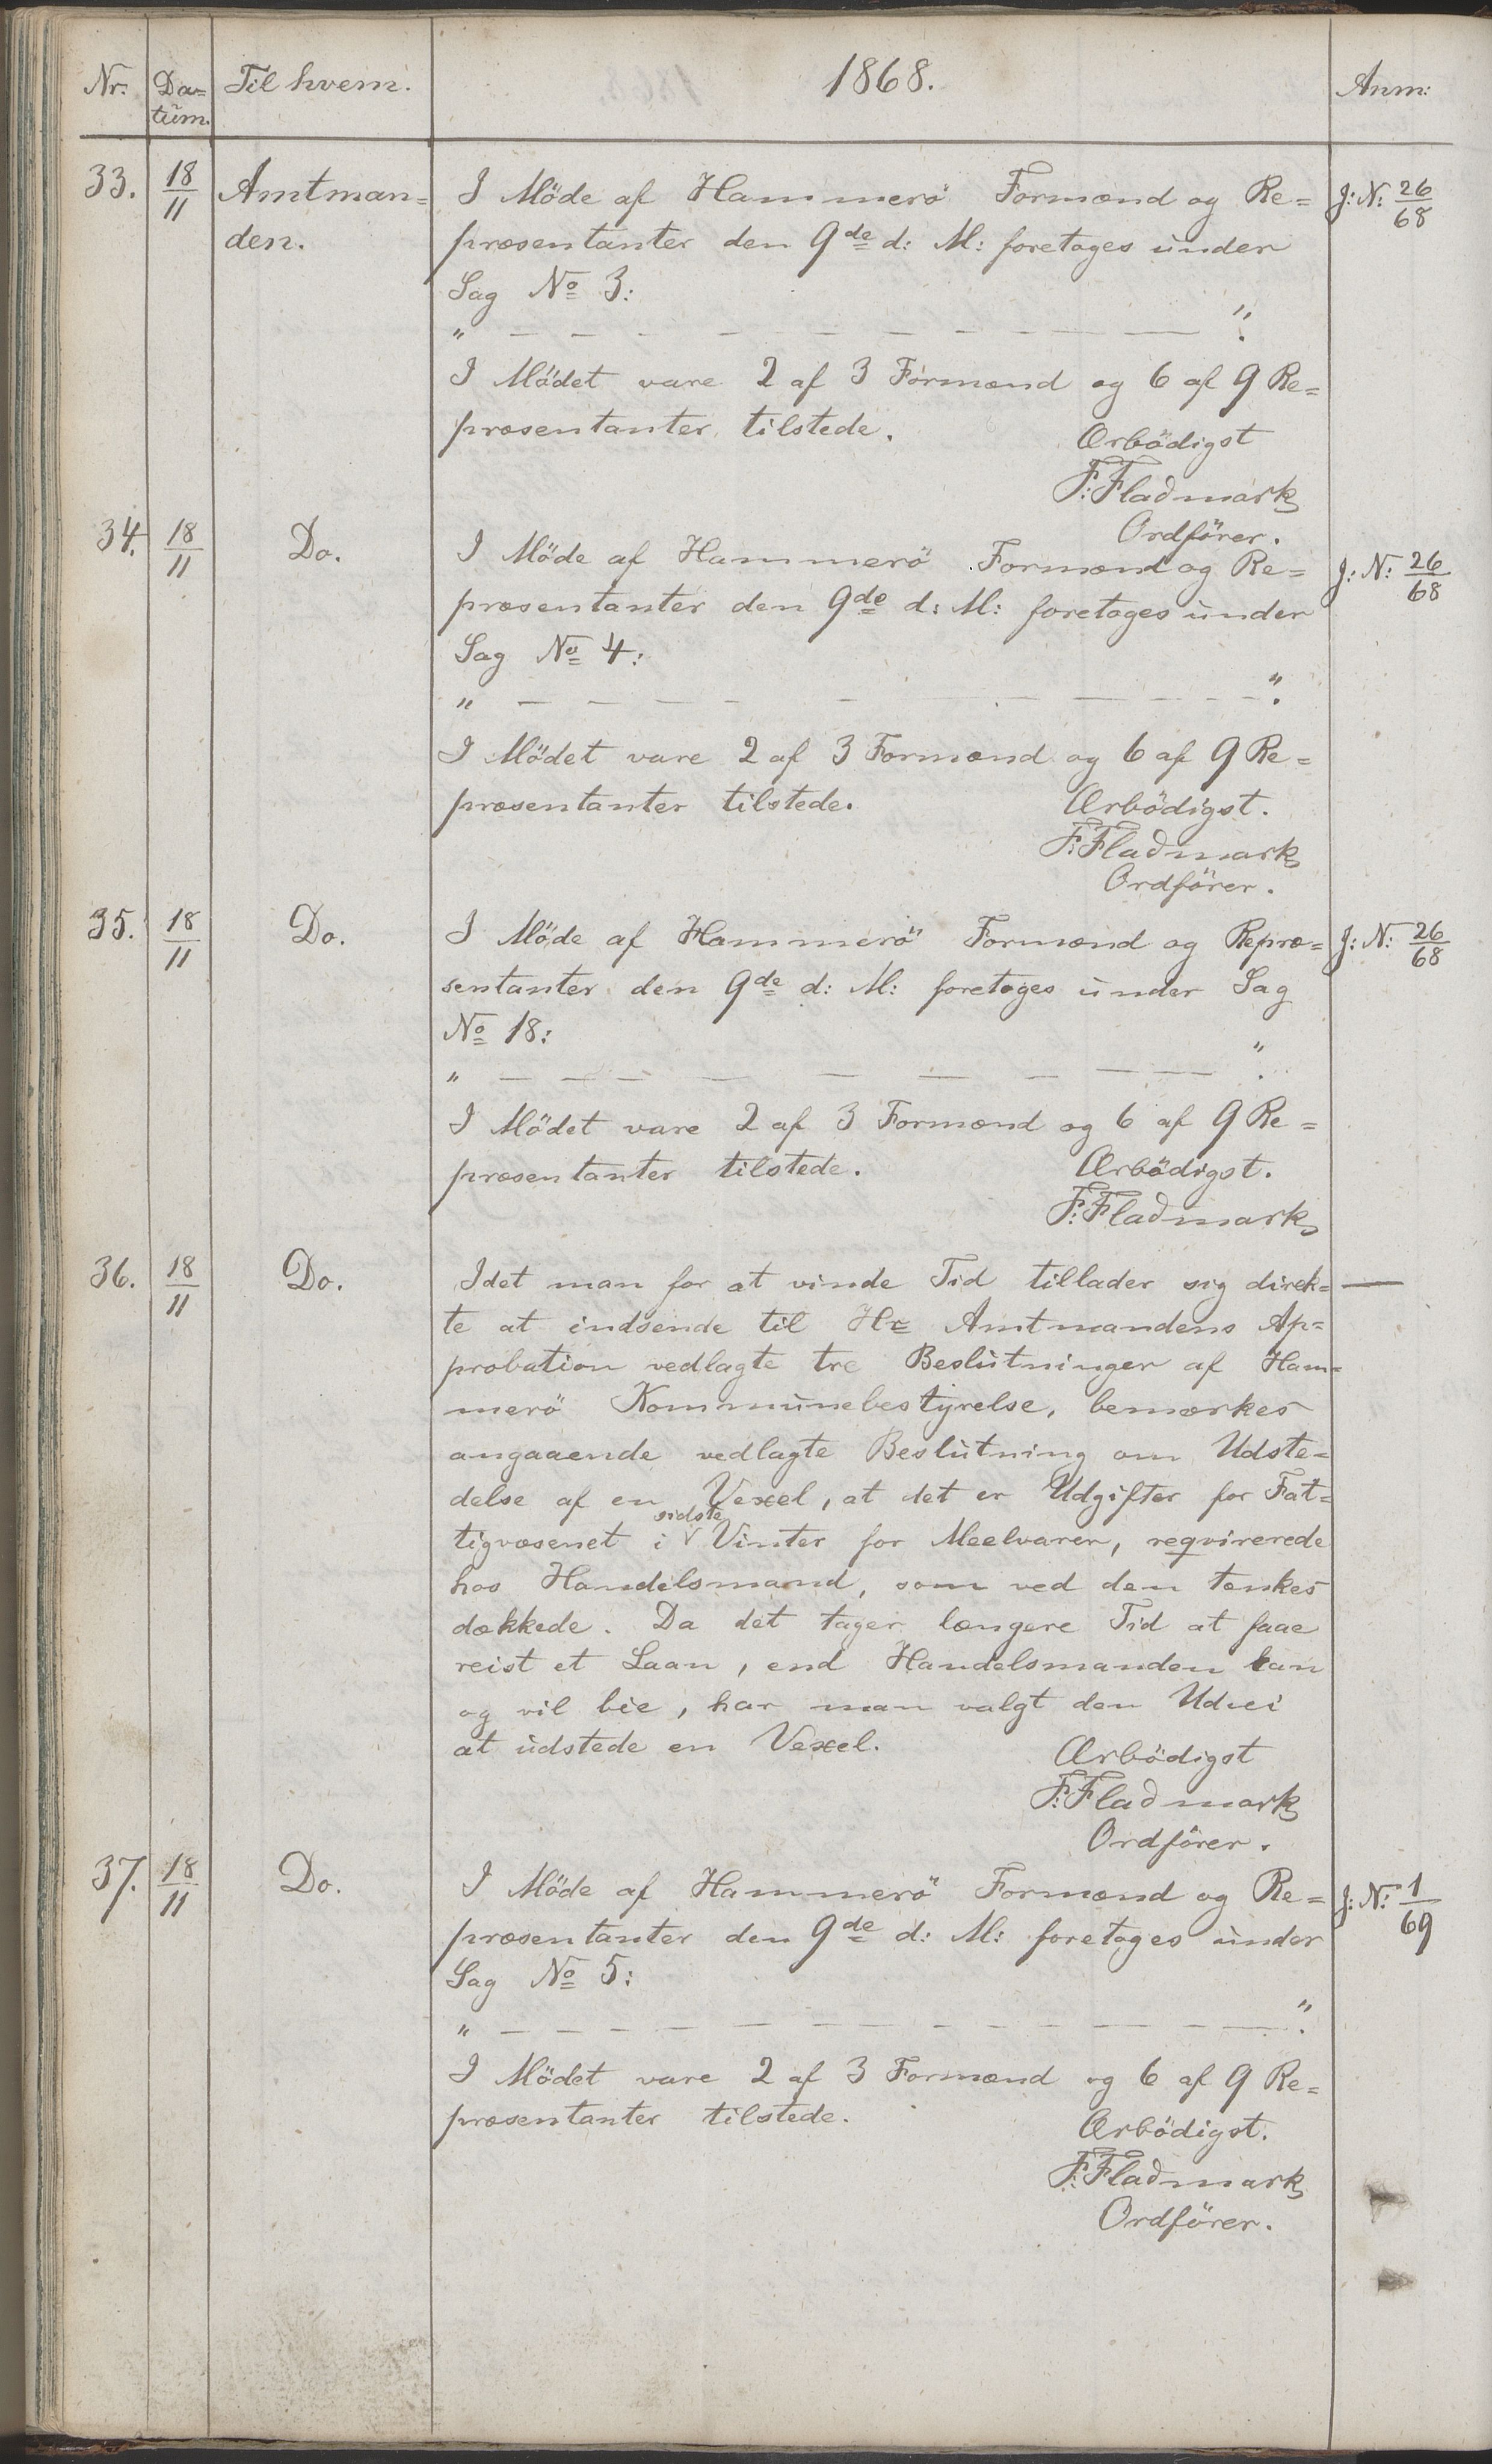 Nr. Da= Til hvem. 1868. Anm:
tum.
33. 18/11 Amtman= I Möde af Hammerö Formænd og Re= J: N: 26/68
den. præsentanter den 9de d: M: foretoges under
Sag No 3:
" — — — — — — — — — — ".
I Mödet vare 2 af 3 Formænd og 6 af 9 Re=
præsentanter tilstede. Ærbödigst
F: Fladmark
Ordförer.
34. 18/11 Do. I Möde af Hammerö Formænd og Re= J: N: 26/68
præsentanter den 9de d: M: foretoges under
Sag No 4:
" — — — — — — — — — — ".
I Mödet vare 2 af 3 Formænd og 6 af 9 Re=
præsentanter tilstede. Ærbödigst.
F: Fladmark
Ordförer.
35. 18/11 Do. I Möde af Hammerö Formænd og Repræ= J: N: 26/68
sentanter den 9de d: M: foretoges under Sag
No 18:
" — — — — — — — — — ".
I Mödet vare 2 af 3 Formænd og 6 af 9 Re=
præsentanter tilstede. Ærbödigst.
F: Fladmark
36. 18/11 Do. Idet man for at vinde Tid tillader sig direk= —
te at indsende til Hr Amtmandens Ap=
probation vedlagte tre Beslutninger af Ham=
merö Kommunebestyrelse, bemærkes
angaaende vedlagte Beslutning om Udste=
delse af en Vexel, at det er Udgifter for Fat=
tigvæsenet i sidste Vinter for Meelvarer, reqvirerede
hos Handelsmand, som ved den tænkes
dækkede. Da det tager længere Tid at faae
reist et Laan, end Handelsmanden kan
og vil bie, har man valgt den Udvei
at udstede en Vexel. Ærbödigst
F: Fladmark
Ordförer.
37. 18/11 Do. I Möde af Hammerö Formænd og Re= J: N: 1/69
præsentanter den 9de d: M: foretoges under
Sag No 5:
" — — — — — — — — — — — ".
I Mödet vare 2 af 3 Formænd og 6 af 9 Re=
præsentanter tilstede. Ærbödigst.
F: Fladmark
Ordförer.